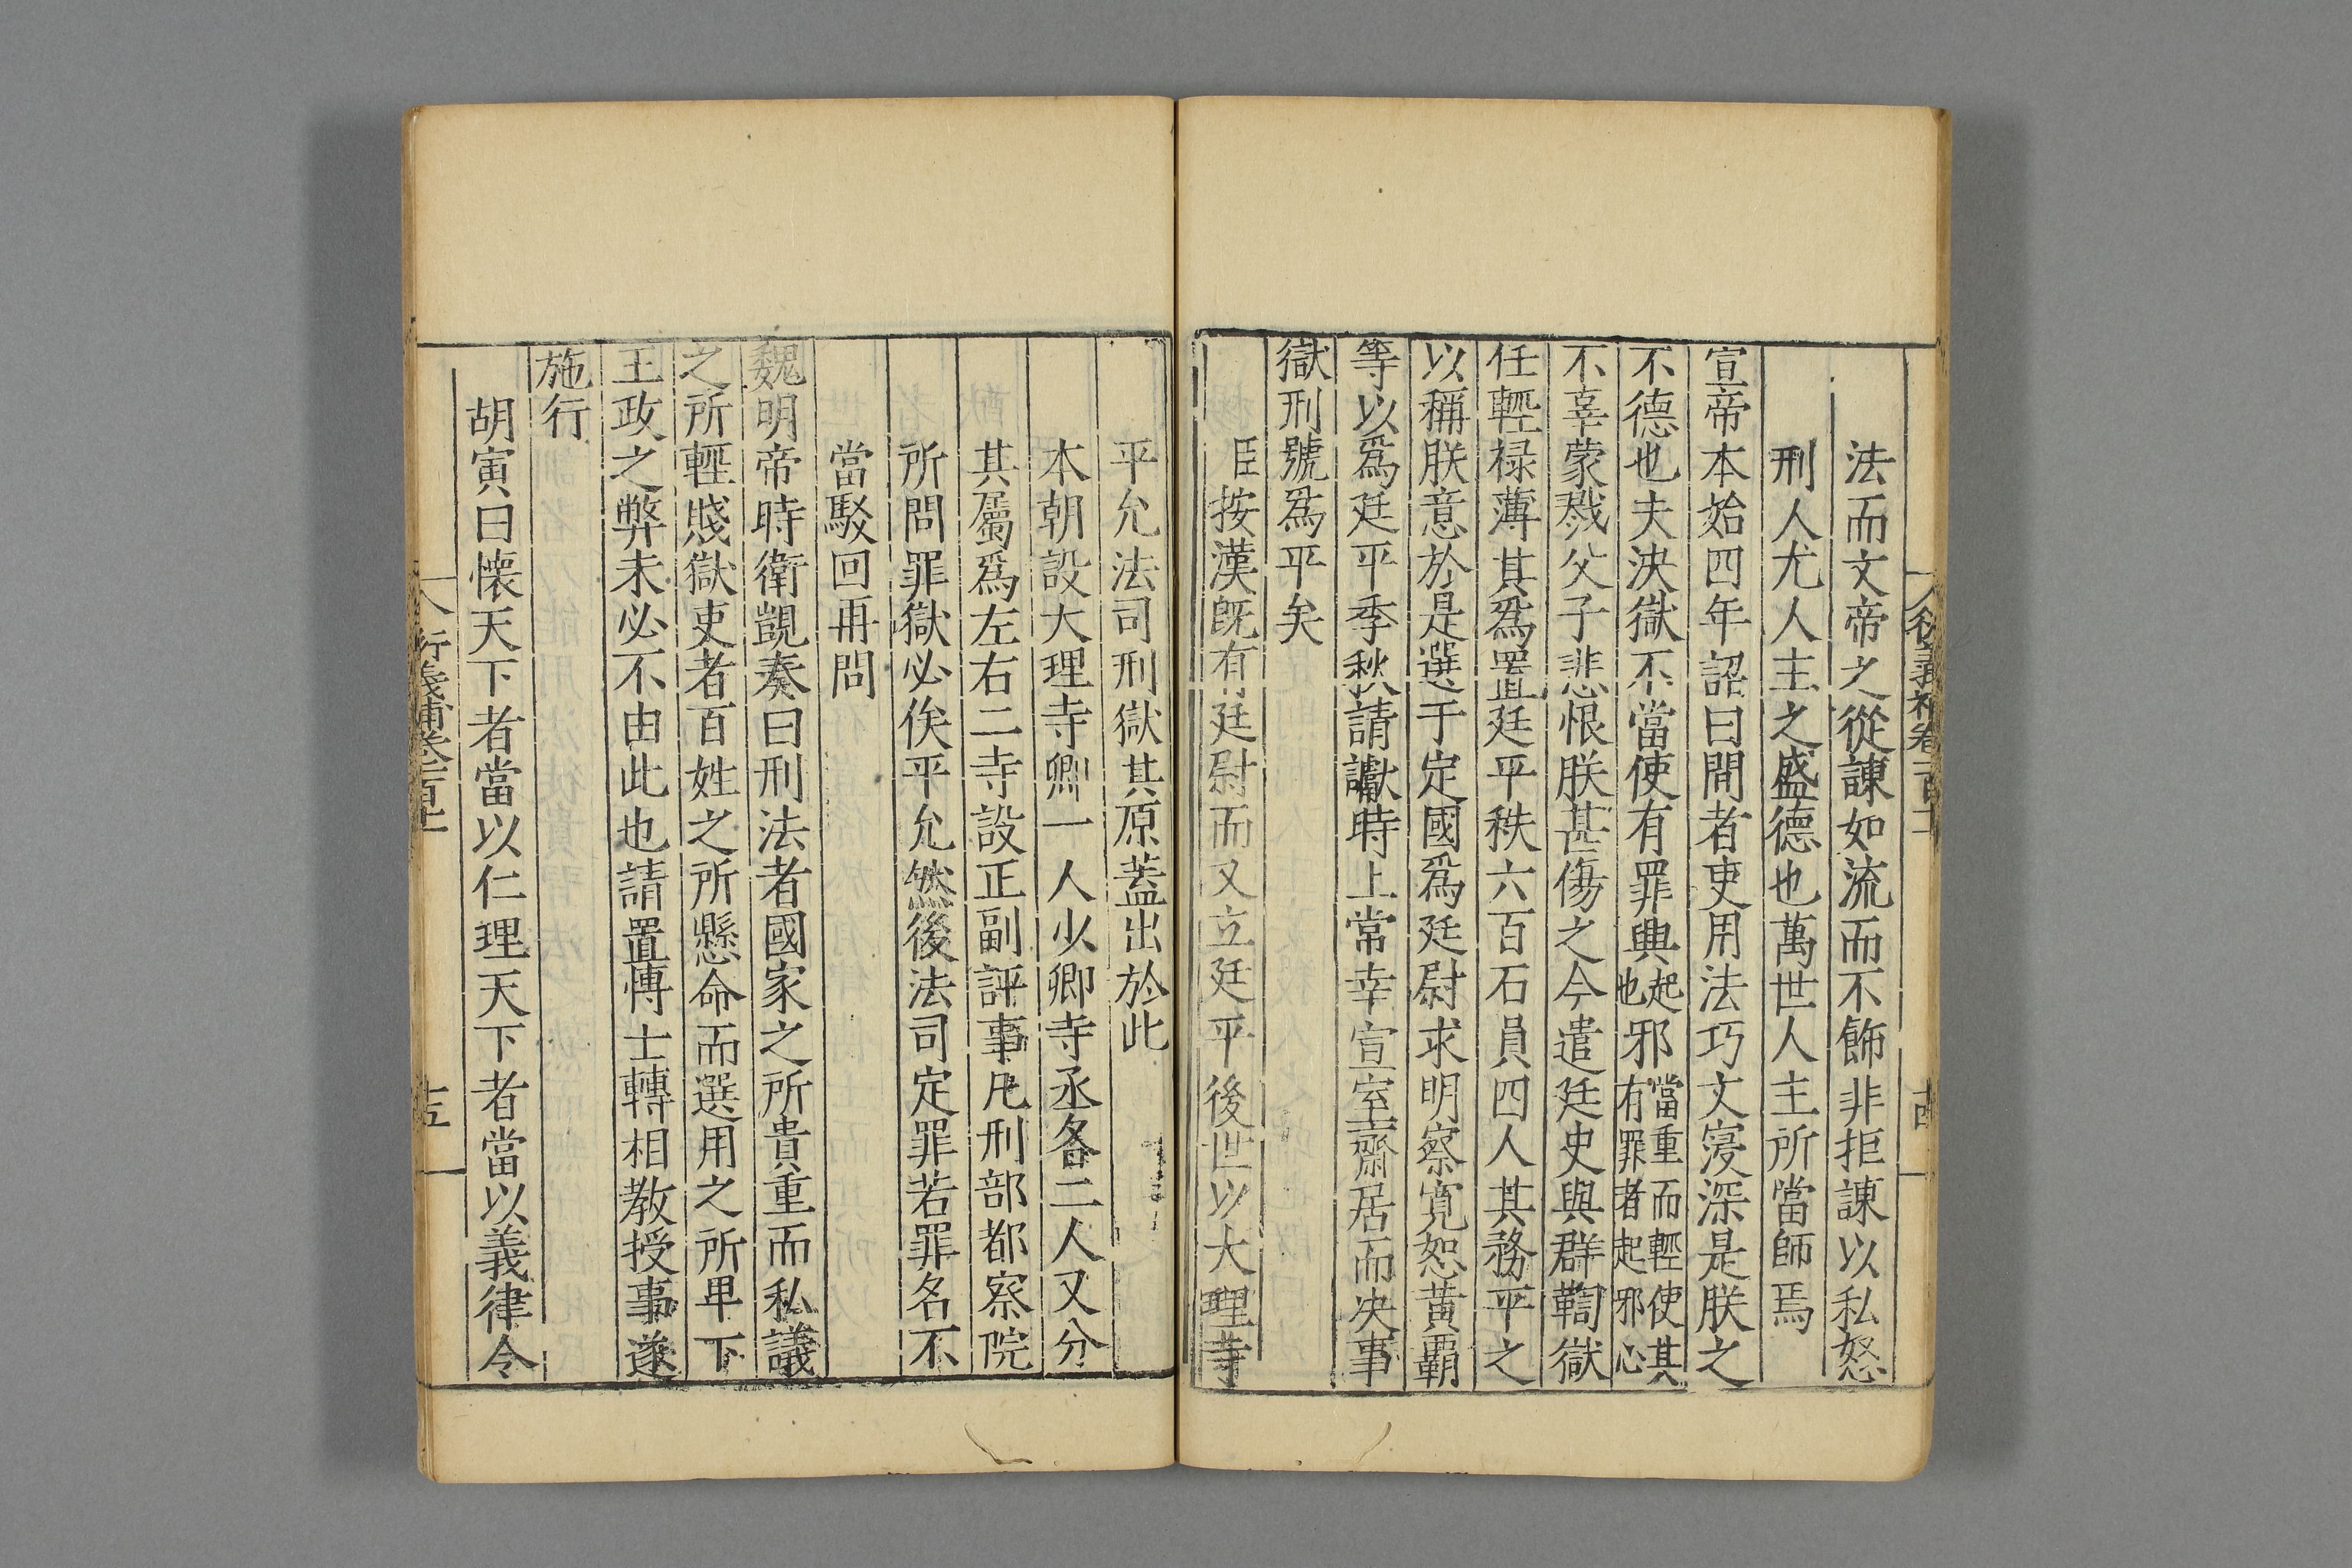 法而文帝之從諫如流而不飾非拒諫以私怒
刑人尤人主之盛德也萬世人主所當師焉
宣帝本始四年詔曰間者吏用法巧文寖深是朕之
不德也夫決獄不當使有罪興起也邪當重而輕使其有罪者起邪心
不辜蒙戮父子悲恨朕甚傷之今遣廷史與群鞫獄
任輕祿薄其爲置廷平秩六百石員四人其務平之
以稱朕意於是選于定國爲廷尉求明察寬恕黃霸
等以爲廷平季秋請讞時上常幸宣室齋居而決事
獄刑號爲平矣
臣按漢旣有廷尉而又立廷平後世以大理寺
平允法司刑獄其原蓋出於此
本朝設大理寺卿一人少卿寺丞各二人又分
其屬爲左右二寺設正副評事凡刑部都察院
所問罪獄必俟平允然後法司定罪若罪名不
當駁回再問
魏明帝時衛覬奏曰刑法者國家之所貴重而私議
之所輕賤獄吏者百姓之所懸命而選用之所卑下
王政之弊未必不由此也請置慱士轉相敎授事遂
施行
胡寅曰懷天下者當以仁理天下者當以義律令
行義補卷一百二
十五